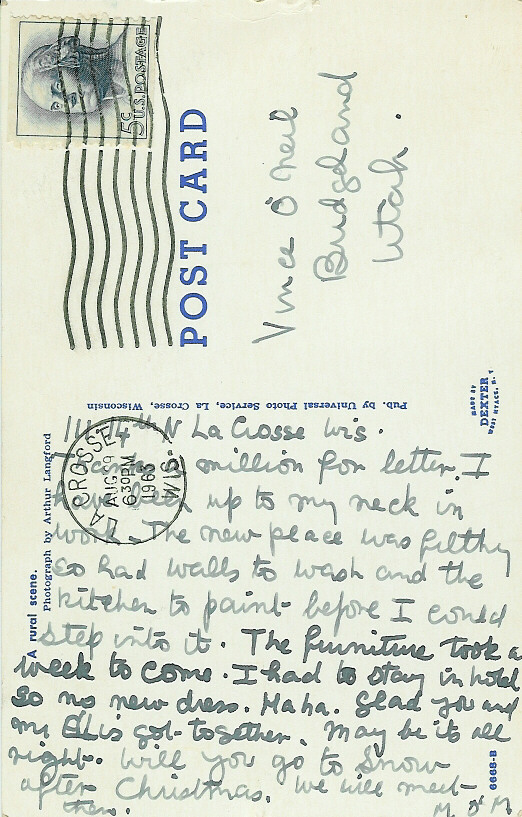 5¢ U.S. POSTAGE
POST CARD
Vince O'Neil
Bridgeland
Utah.
Pub. by Universal Photo Service, La Crosse, Wisconsin
MADE BY
DEXTER
WEST NYACK, N. Y.
LA CROSSE
AUG 9
630PM
1963
WIS.
A rural scene.
Photograph by Arthur Langford
4th N La Crosse Wis.
million for letter. I
have been up to my neck in
work. The new place was filthy
so had walls to wash and the
kitchen to paint before I could
step into it. The furniture took a
week to come. I had to stay in hotel
so no new dress. Haha. Glad you and
mr Ellis got together. May be its all
right. Will you go to Snow
after Christmas. We will meet
then.
6668-B